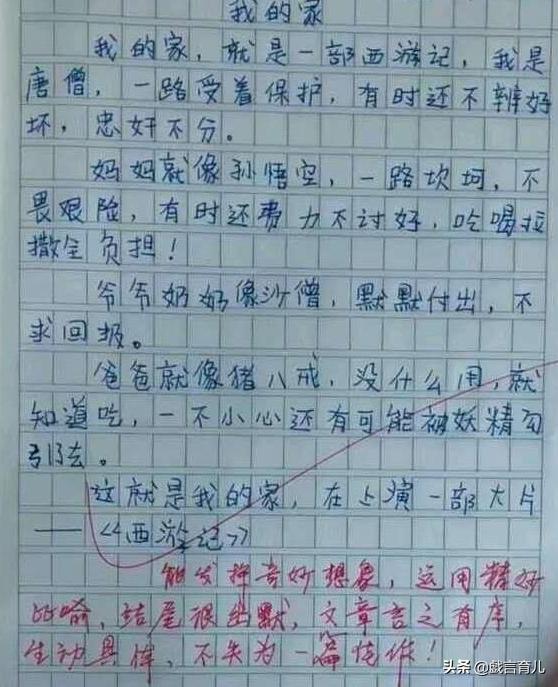 我的家
我的家，就是一部西游记，我是
唐僧，一路受着保护，有时还不辨好
坏，忠奸不分。
妈妈就像孙悟空，一路坎坷，不
畏艰险，有时还费力不讨好，吃喝拉
撒全负担！
爷爷奶奶像沙僧，默默付出，不
求回报。
爸爸就像猪八戒，没什么用，就
知道吃，一不小心还有可能被妖精勾
引去。
这就是我的家，在上演一部大片
——《西游记》
能发挥奇妙想象，运用精妙
比喻，结尾很幽默，文章言之有序，
生动具体，不失为一篇佳作！
头条 @戯言育儿